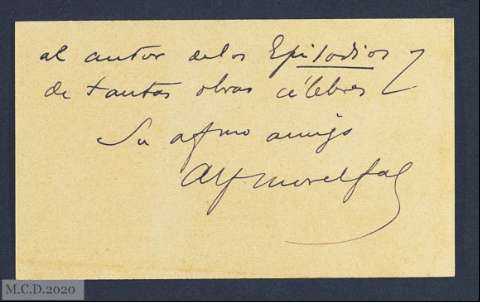 al autor de los Episodios y
de tantas obras célebres
Su afmo amigo
Alf Morel Fal
M.C.D.2020